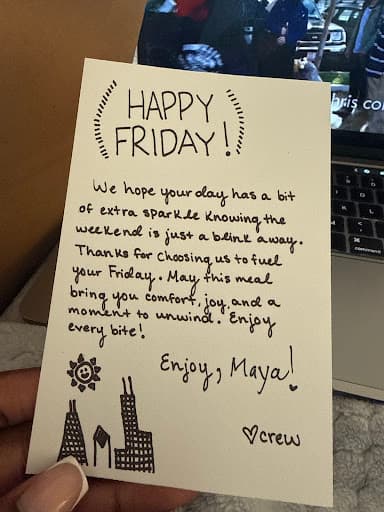 HAPPY
FRIDAY!
We hope your day has a bit
of extra sparkle knowing the
weekend is just a blink away.
Thanks for choosing us to fuel
your Friday. May this meal
bring you comfort, joy, and a
moment to unwind. Enjoy
every bite!
Enjoy, Maya!
♡crew
hris co
command